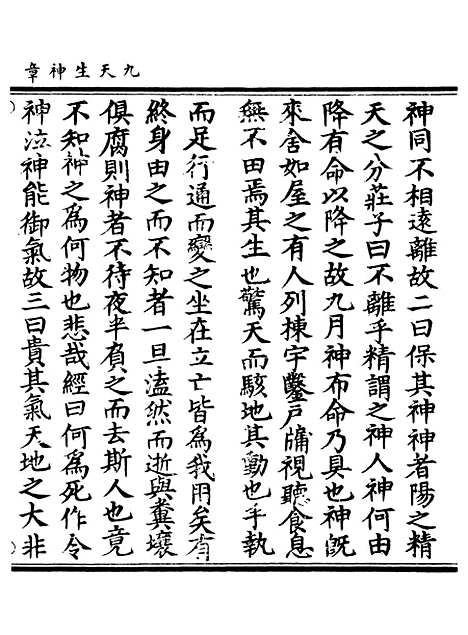 九天生神章
神同不相遠離故二曰保其神神者陽之精
天之分莊子曰不離乎精謂之神人神何由
降有命以降之故九月神布命乃具也神既
來舍如屋之有人列棟宇鑿戶牖視聽食息
無不田焉其生也驚天而駭地其動也手執
而足行通而變之坐在立亡皆為我用矣有
終身由之而不知者一旦溘然而逝與糞壤
俱腐則神者不待夜半負之而去斯人也竟
不知神之為何物也悲哉經曰何為死作令
神泣神能御氣故三曰貴其氣天地之大非